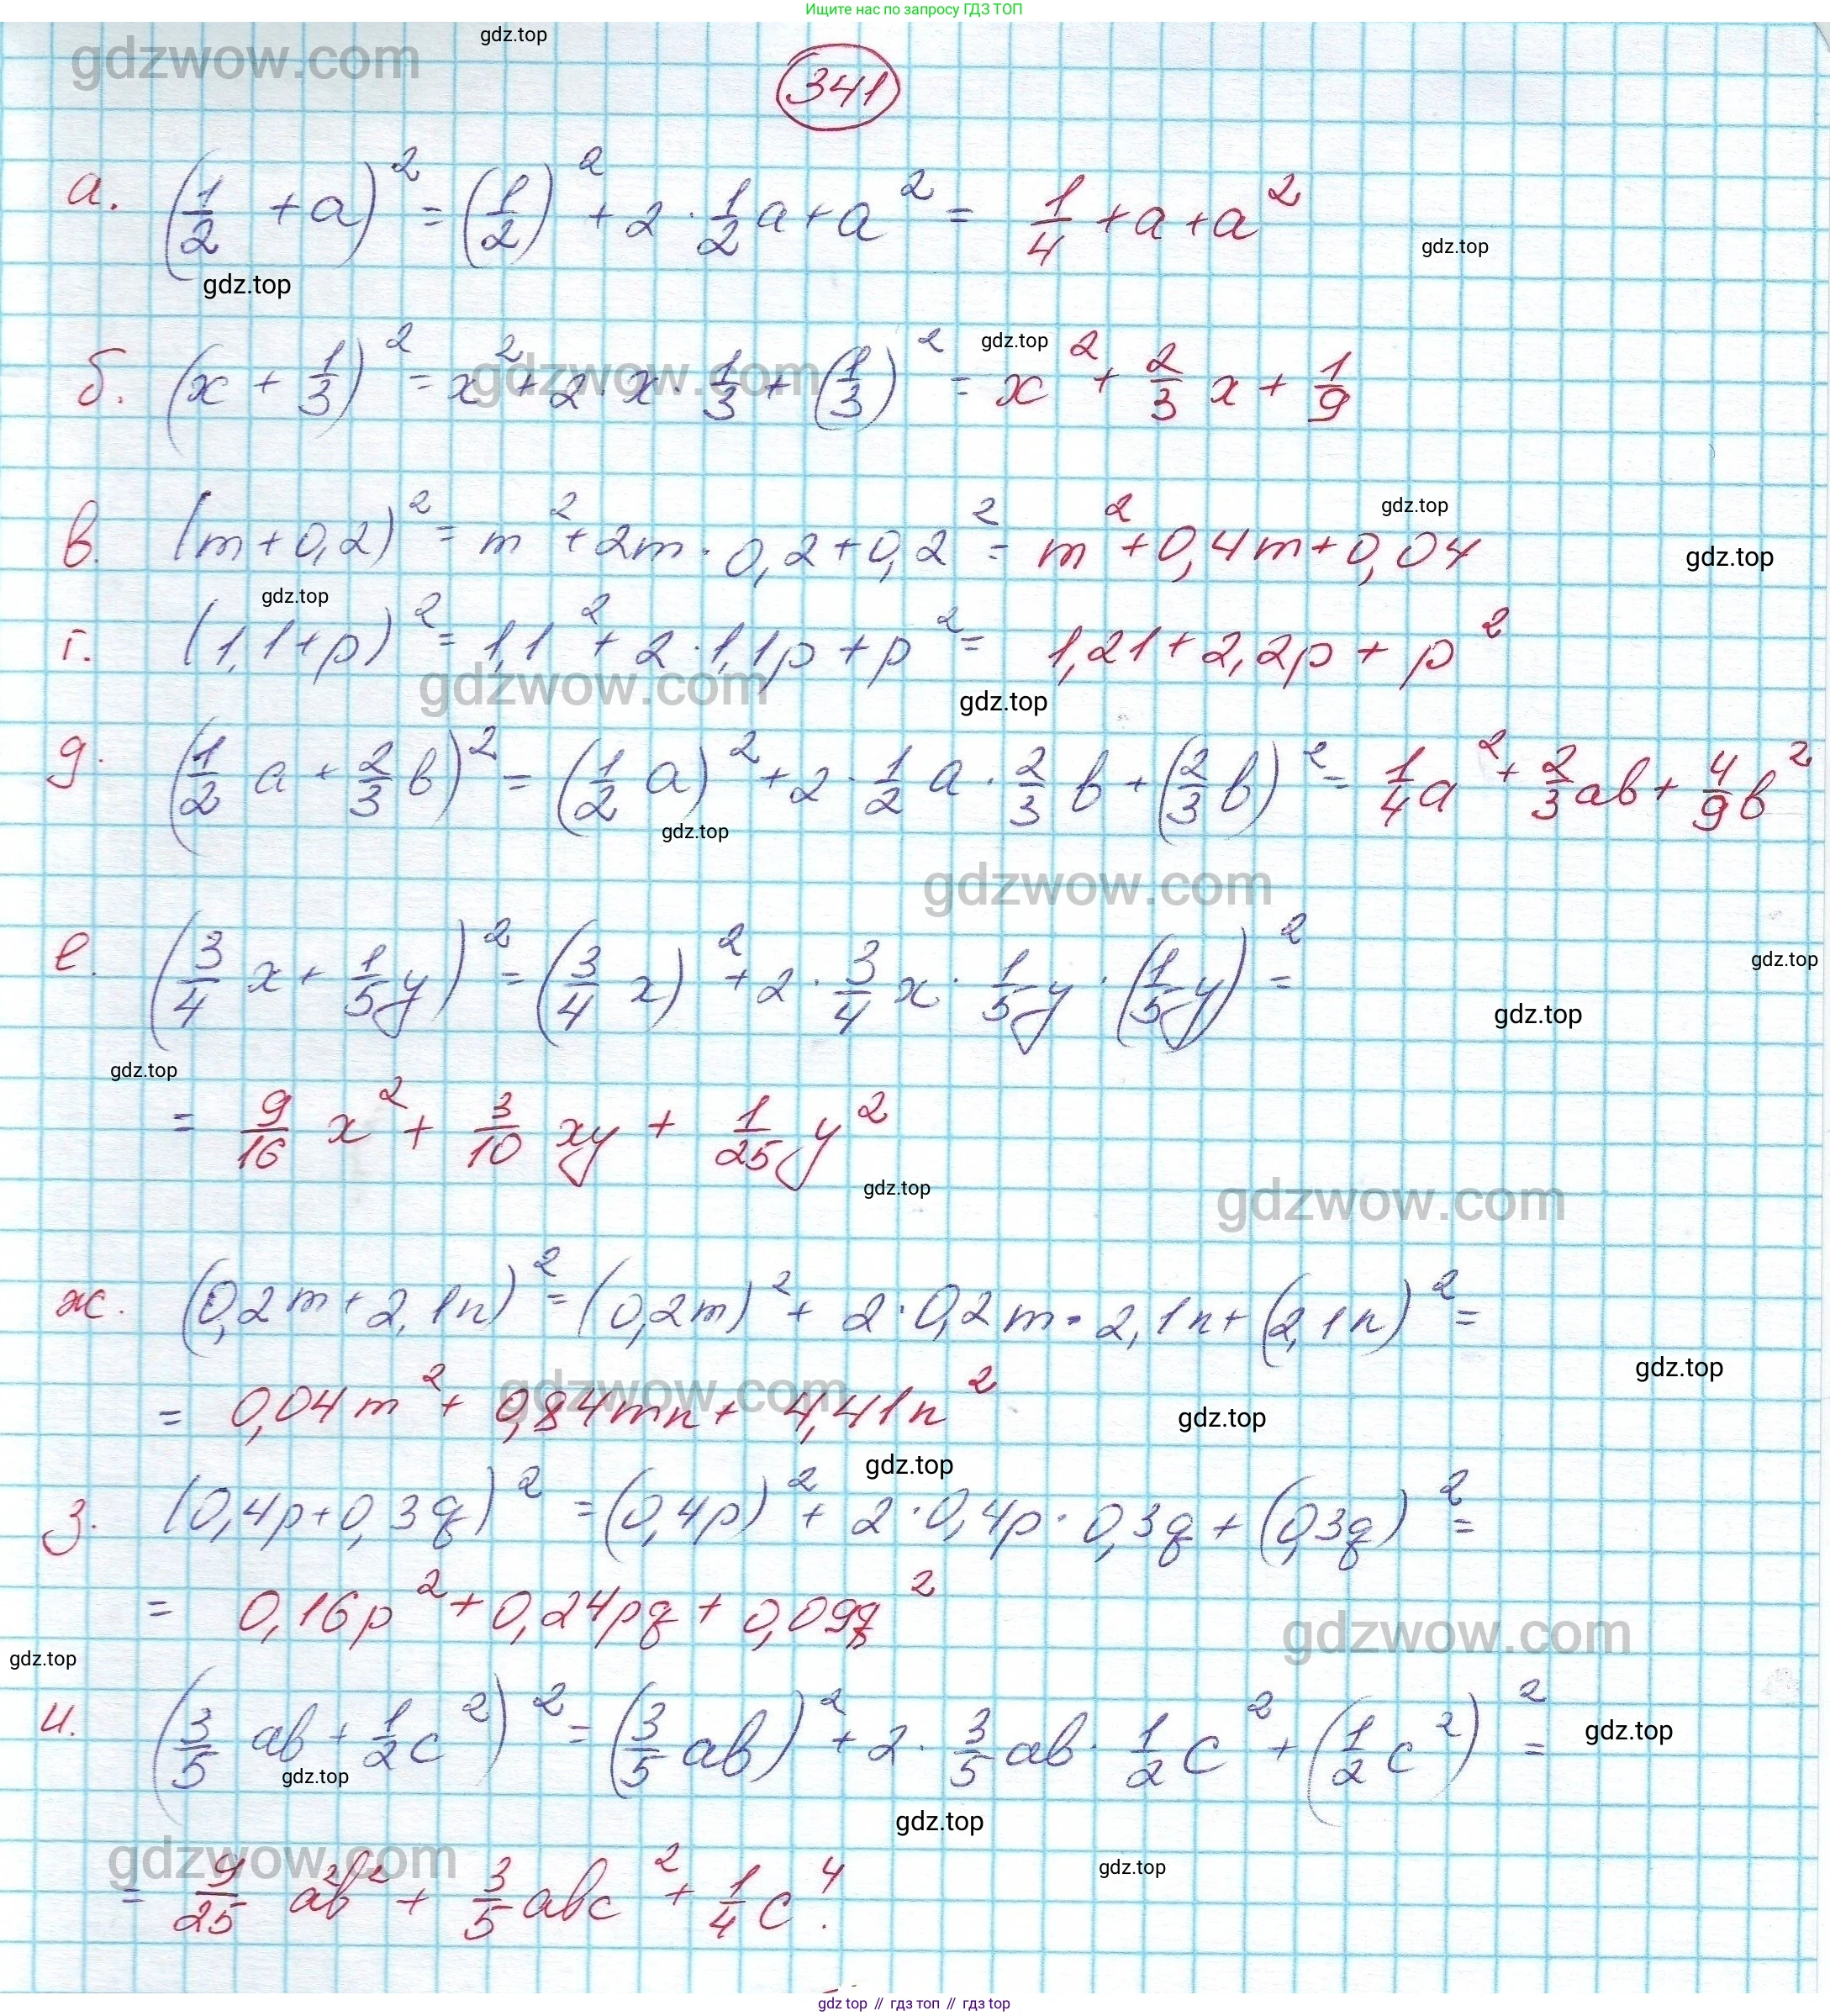 Ищите нас по запросу ГДЗ ТОП
gdzwow.com gdz.top
341
а. (1/2 + a)² = (1/2)² + 2 · 1/2 a + a² = 1/4 + a + a²
gdz.top
gdz.top
gdz.top
б. (x + 1/3)² = x² + 2 · x · 1/3 + (1/3)² = x² + 2/3 x + 1/9
gdzwow.com
gdz.top
в. (m + 0,2)² = m² + 2m · 0,2 + 0,2² = m² + 0,4m + 0,04
gdz.top
gdz.top
г. (1,1 + p)² = 1,1² + 2 · 1,1p + p² = 1,21 + 2,2p + p²
gdzwow.com
gdz.top
д. (1/2 a + 2/3 b)² = (1/2 a)² + 2 · 1/2 a · 2/3 b + (2/3 b)² = 1/4 a² + 2/3 ab + 4/9 b²
gdz.top
gdzwow.com
е. (3/4 x + 1/5 y)² = (3/4 x)² + 2 · 3/4 x · 1/5 y · (1/5 y)² =
gdz.top
gdz.top
gdz.top
= 9/16 x² + 3/10 xy + 1/25 y²
gdz.top
gdzwow.com
ж. (0,2m + 2,1n)² = (0,2m)² + 2 · 0,2m · 2,1n + (2,1n)² =
gdz.top
= 0,04m² + 0,84mn + 4,41n²
gdzwow.com
gdz.top
gdz.top
з. (0,4p + 0,3q)² = (0,4p)² + 2 · 0,4p · 0,3q + (0,3q)² =
= 0,16p² + 0,24pq + 0,09q²
gdzwow.com
gdz.top
и. (3/5 ab + 1/2 c²)² = (3/5 ab)² + 2 · 3/5 ab · 1/2 c² + (1/2 c²)² =
gdz.top
gdz.top
gdz.top
gdzwow.com
gdz.top
= 9/25 a²b² + 3/5 abc² + 1/4 c⁴.
gdz.top // гдз топ // гдз top